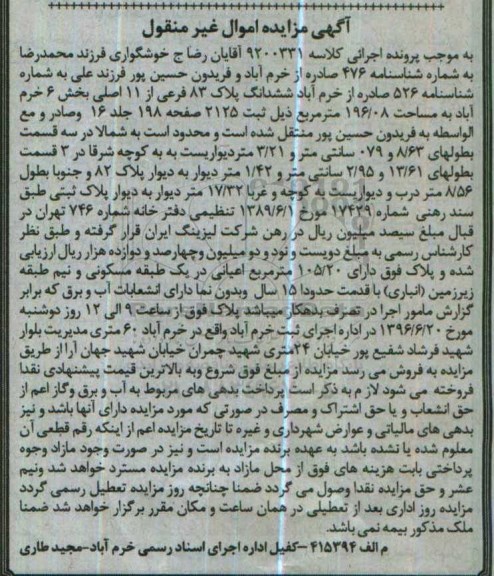 آگهی مزایده اموال غیر منقول
به موجب پرونده اجرائی کلاسه ۹۲۰۰۳۳۱ آقایان رضا ج خوشگواری فرزند محمدرضا
به شماره شناسنامه ۴۷۶ صادره از خرم آباد و فریدون حسین پور فرزند علی به شماره
شناسنامه ۵۲۶ صادره از خرم آباد ششدانگ پلاک ۸۳ فرعی از ۱۱ اصلی بخش ۶ خرم
آباد به مساحت ۱۹۶/۰۸ مترمربع ذیل ثبت ۲۱۲۵ صفحه ۱۹۸ جلد ۱۶ وصادر و مع
الواسطه به فریدون حسین پور منتقل شده است و محدود است به شمالا در سه قسمت
بطولهای ۸/۶۳ و ۰۷۹ سانتی متر و ۳/۲۱ متردیواریست به به کوچه شرقا در ۳ قسمت
بطولهای ۱۳/۶۱ و ۲/۹۵ سانتی متر و ۱/۴۲ متر دیوار به دیوار پلاک ۸۲ و جنوبا بطول
۸/۵۶ متر درب و دیواریست به کوچه و غربا ۱۷/۳۲ متر دیوار به دیوار پلاک ثبتی طبق
سند رهنی شماره ۱۷۴۲۹ مورخ ۱۳۸۹/۶/۱ تنظیمی دفتر خانه شماره ۷۴۶ تهران در
قبال مبلغ سیصد میلیون ریال در رهن شرکت لیزینگ ایران قرار گرفته و طبق نظر
کارشناس رسمی به مبلغ دویست و نود و دو میلیون وچهارصد و دوازده هزار ریال ارزیابی
شده و پلاک فوق دارای ۱۰۵/۲۰ مترمربع اعیانی در یک طبقه مسکونی و نیم طبقه
زیرزمین (انباری) با قدمت حدودا ۱۵ سال وبدون نما دارای انشعابات آب و برق که برابر
گزارش مامور اجرا در تصرف بدهکار میباشد پلاک فوق از ساعت ۹ الی ۱۲ روز دوشنبه
مورخ ۱۳۹۶/۶/۲۰ در اداره اجرای ثبت خرم آباد واقع در خرم آباد ۶۰ متری مدیریت بلوار
شهید فرشاد شفیع پور خیابان ۲۴متری شهید چمران خیابان شهید جهان آرا از طریق
مزایده به فروش می رسد مزایده از مبلغ فوق شروع وبه بالاترین قیمت پیشنهادی نقدا
فروخته می شود لازم به ذکر است پرداخت بدهی های مربوط به آب و برق وگاز اعم از
حق انشعاب و یا حق اشتراک و مصرف در صورتی که مورد مزایده دارای آنها باشد و نیز
بدهی های مالیاتی و عوارض شهرداری و غیره تا تاریخ مزایده اعم از اینکه رقم قطعی آن
معلوم شده یا نشده باشد به عهده برنده مزایده است و نیز در صورت وجود مازاد وجوه
پرداختی بابت هزینه های فوق از محل مازاد به برنده مزایده مسترد خواهد شد ونیم
عشر و حق مزایده نقدا وصول می گردد ضمنا چنانچه روز مزایده تعطیل رسمی گردد
مزایده روز اداری بعد از تعطیلی در همان ساعت و مکان مقرر برگزار خواهد شد ضمنا
ملک مذکور بیمه نمی باشد.
م الف ۴۱۵۳۹۴ -کفیل اداره اجرای اسناد رسمی خرم آباد-مجید طاری